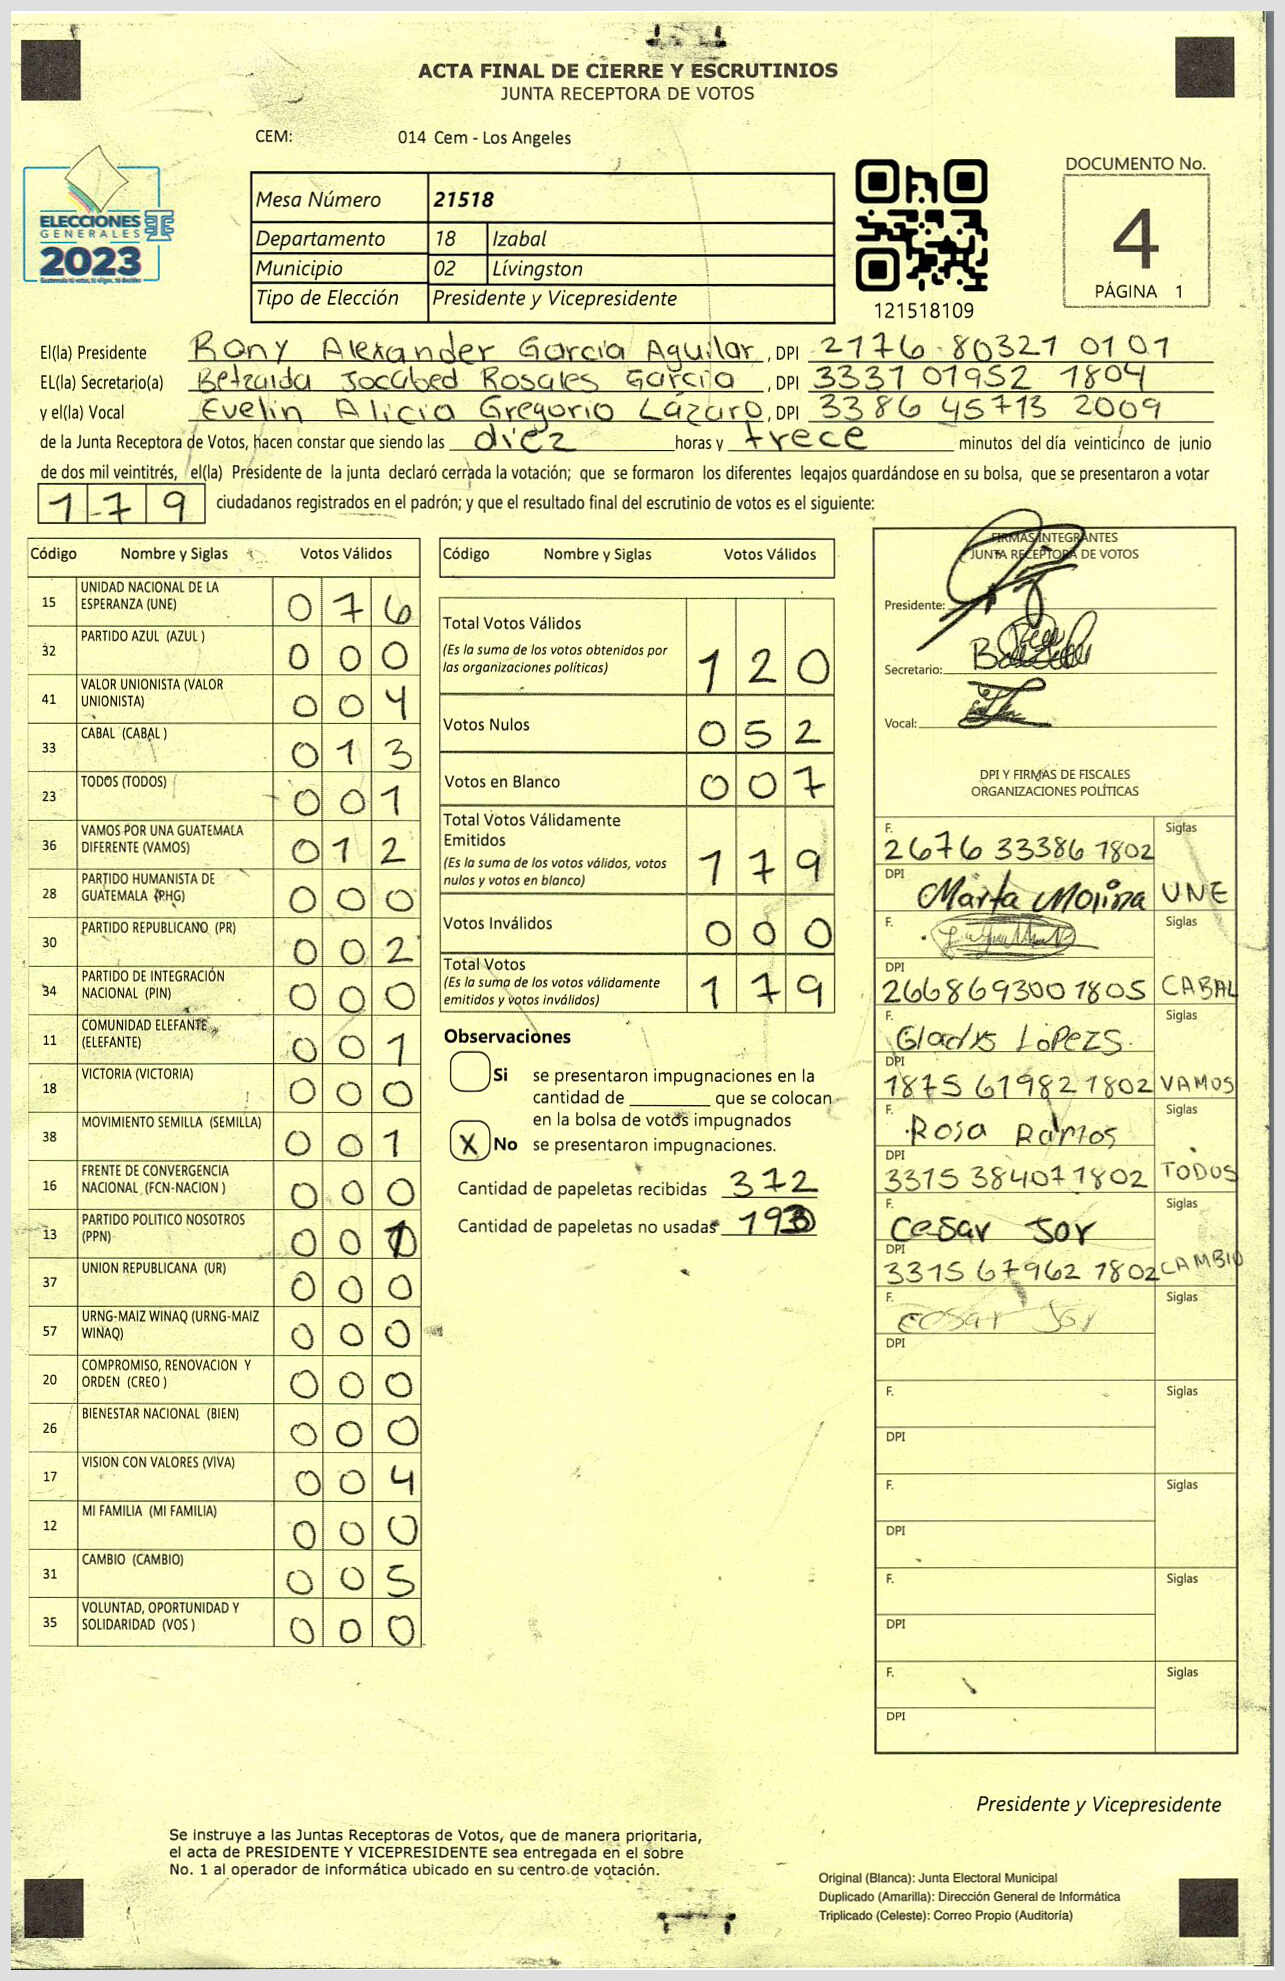 ACTA FINAL DE CIERRE Y ESCRUTINIOS
JUNTA RECEPTORA DE VOTOS
CEM: 014 Cem - Los Angeles
ELECCIONES
GENERALES
2023
Mesa Número 21518
Departamento 18 Izabal
Municipio 02 Lívingston
Tipo de Elección Presidente y Vicepresidente
121518109
DOCUMENTO No.
4
PÁGINA 1
El(la) Presidente Rony Alexander Garcia Aguilar, DPI 2176 80321 0101
EL(la) Secretario(a) Betzaida Jocabed Rosales Garcia, DPI 3331 01952 1804
y el(la) Vocal Evelin Alicia Gregorio Lázaro, DPI 3386 45713 2009
de la Junta Receptora de Votos, hacen constar que siendo las diez horas y trece minutos del día veinticinco de junio
de dos mil veintitrés, el(la) Presidente de la junta declaró cerrada la votación; que se formaron los diferentes legajos quardándose en su bolsa, que se presentaron a votar
179 ciudadanos registrados en el padrón; y que el resultado final del escrutinio de votos es el siguiente:
Código Nombre y Siglas Votos Válidos
15 UNIDAD NACIONAL DE LA ESPERANZA (UNE) 076
32 PARTIDO AZUL (AZUL ) 000
41 VALOR UNIONISTA (VALOR UNIONISTA) 004
33 CABAL (CABAL ) 013
23 TODOS (TODOS) 001
36 VAMOS POR UNA GUATEMALA DIFERENTE (VAMOS) 012
28 PARTIDO HUMANISTA DE GUATEMALA (PHG) 000
30 PARTIDO REPUBLICANO (PR) 002
34 PARTIDO DE INTEGRACIÓN NACIONAL (PIN) 000
11 COMUNIDAD ELEFANTE (ELEFANTE) 001
18 VICTORIA (VICTORIA) 000
38 MOVIMIENTO SEMILLA (SEMILLA) 001
16 FRENTE DE CONVERGENCIA NACIONAL (FCN-NACION ) 000
13 PARTIDO POLITICO NOSOTROS (PPN) 001
37 UNION REPUBLICANA (UR) 000
57 URNG-MAIZ WINAQ (URNG-MAIZ WINAQ) 000
20 COMPROMISO, RENOVACION Y ORDEN (CREO ) 000
26 BIENESTAR NACIONAL (BIEN) 000
17 VISION CON VALORES (VIVA) 004
12 MI FAMILIA (MI FAMILIA) 000
31 CAMBIO (CAMBIO) 005
35 VOLUNTAD, OPORTUNIDAD Y SOLIDARIDAD (VOS ) 000
Código Nombre y Siglas Votos Válidos
Total Votos Válidos
(Es la suma de los votos obtenidos por
las organizaciones políticas) 120
Votos Nulos 052
Votos en Blanco 007
Total Votos Válidamente
Emitidos
(Es la suma de los votos válidos, votos
nulos y votos en blanco) 179
Votos Inválidos 000
Total Votos
(Es la suma de los votos válidamente
emitidos y votos inválidos) 179
Observaciones
Si se presentaron impugnaciones en la
cantidad de ________ que se colocan
en la bolsa de votos impugnados
X No se presentaron impugnaciones.
Cantidad de papeletas recibidas 372
Cantidad de papeletas no usadas 193
FIRMAS INTEGRANTES
JUNTA RECEPTORA DE VOTOS
Presidente:
Secretario:
Vocal:
DPI Y FIRMAS DE FISCALES
ORGANIZACIONES POLÍTICAS
F. Siglas
2676 33386 1802
DPI Marta Molina UNE
F. Siglas
DPI
266869300 1805 CABAL
F. Siglas
Gladys LópezS.
DPI
1875 61982 1802 VAMOS
F. Siglas
Rosa Ramos
DPI
3315 38407 1802 TODOS
F. Siglas
Cesar Jor
DPI
3315 67962 1802 CAMBIO
F. Siglas
Cesar Jor
DPI
F. Siglas
DPI
F. Siglas
DPI
F. Siglas
DPI
F. Siglas
DPI
Presidente y Vicepresidente
Se instruye a las Juntas Receptoras de Votos, que de manera prioritaria,
el acta de PRESIDENTE Y VICEPRESIDENTE sea entregada en el sobre
No. 1 al operador de informática ubicado en su centro de votación.
Original (Blanca): Junta Electoral Municipal
Duplicado (Amarilla): Dirección General de Informática
Triplicado (Celeste): Correo Propio (Auditoría)